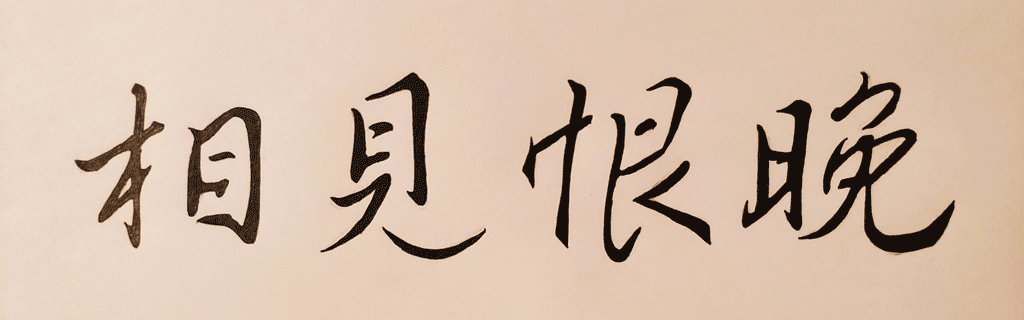 相見恨晚